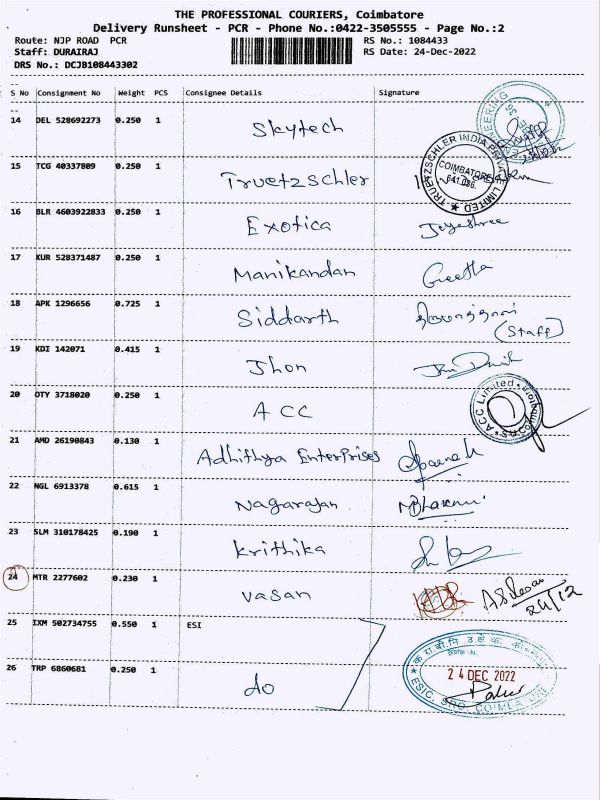 THE PROFESSIONAL COURIERS, Coimbatore
Delivery Runsheet - PCR - Phone No.:0422-3505555 - Page No.:2
Route: NJP ROAD PCR RS No.: 1084433
Staff: DURAIRAJ RS Date: 24-Dec-2022
DRS No.: DCJB108443302
S No Consignment No Weight PCS Consignee Details Signature
14 DEL 528692273 0.250 1 Skytech
15 TCG 40337809 0.250 1 Truetzschler
TRUETZSCHLER INDIA PRIVATE LIMITED
COIMBATORE
641 036.
16 BLR 4603922833 0.250 1 Exotica Jeyashree
17 KUR 528371487 0.250 1 Manikandan Geetha
18 APK 1296656 0.725 1 Siddarth
(Staff)
19 KDI 142071 0.415 1 Jhon
20 OTY 3718020 0.250 1 ACC
ACC Limited
21 AMD 26190843 0.130 1 Adhithya Enterprises
22 NGL 6913378 0.615 1 Nagarajan
23 SLM 310178425 0.190 1 Krithika
24 MTR 2277602 0.230 1 Vasan
24/12
25 IXM 502734755 0.550 1 ESI
26 TRP 6860681 0.250 1 do
24 DEC 2022
ESIC